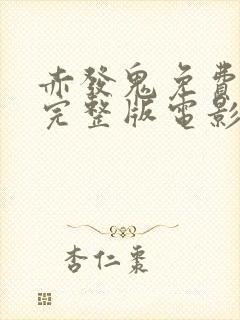 赤發鬼免費
完整版電影
杏仁棗